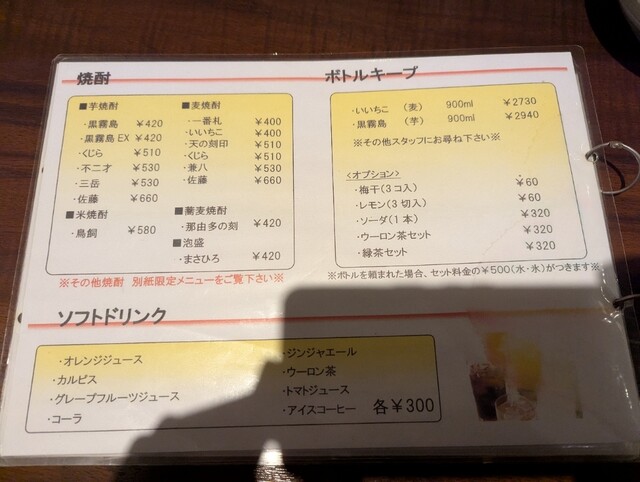 焼酎
■芋焼酎
・黒霧島 ￥420
・黒霧島 EX ￥420
・くじら ￥510
・不二才 ￥530
・三岳 ￥530
・佐藤 ￥660
■米焼酎
・鳥飼 ￥580
■麦焼酎
・一番札 ￥400
・いいちこ ￥400
・天の刻印 ￥510
・くじら ￥510
・兼八 ￥530
・佐藤 ￥660
■蕎麦焼酎
・那由多の刻 ￥420
■泡盛
・まさひろ ￥420
※その他焼酎 別紙限定メニューをご覧下さい※
ボトルキープ
・いいちこ （麦） 900ml ￥2730
・黒霧島 （芋） 900ml ￥2940
※その他スタッフにお尋ね下さい※
＜オプション＞
・梅干(3コ入) ￥60
・レモン(3切入) ￥60
・ソーダ(1本) ￥320
・ウーロン茶セット ￥320
・緑茶セット ￥320
※ボトルを頼まれた場合、セット料金の￥500(水・氷)がつきます※
ソフトドリンク
・オレンジジュース
・カルピス
・グレープフルーツジュース
・コーラ
・ジンジャエール
・ウーロン茶
・トマトジュース
・アイスコーヒー 各￥300